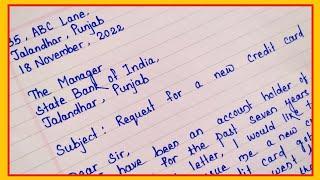 35, ABC Lane,
Jalandhar, Punjab
18 November, 2022
The Manager
State Bank of India,
Jalandhar, Punjab
Subject: Request for a new credit card
Dear Sir,
I have been an account holder of
for the past seven years
letter, I would like t
ue me a new cr
it card got